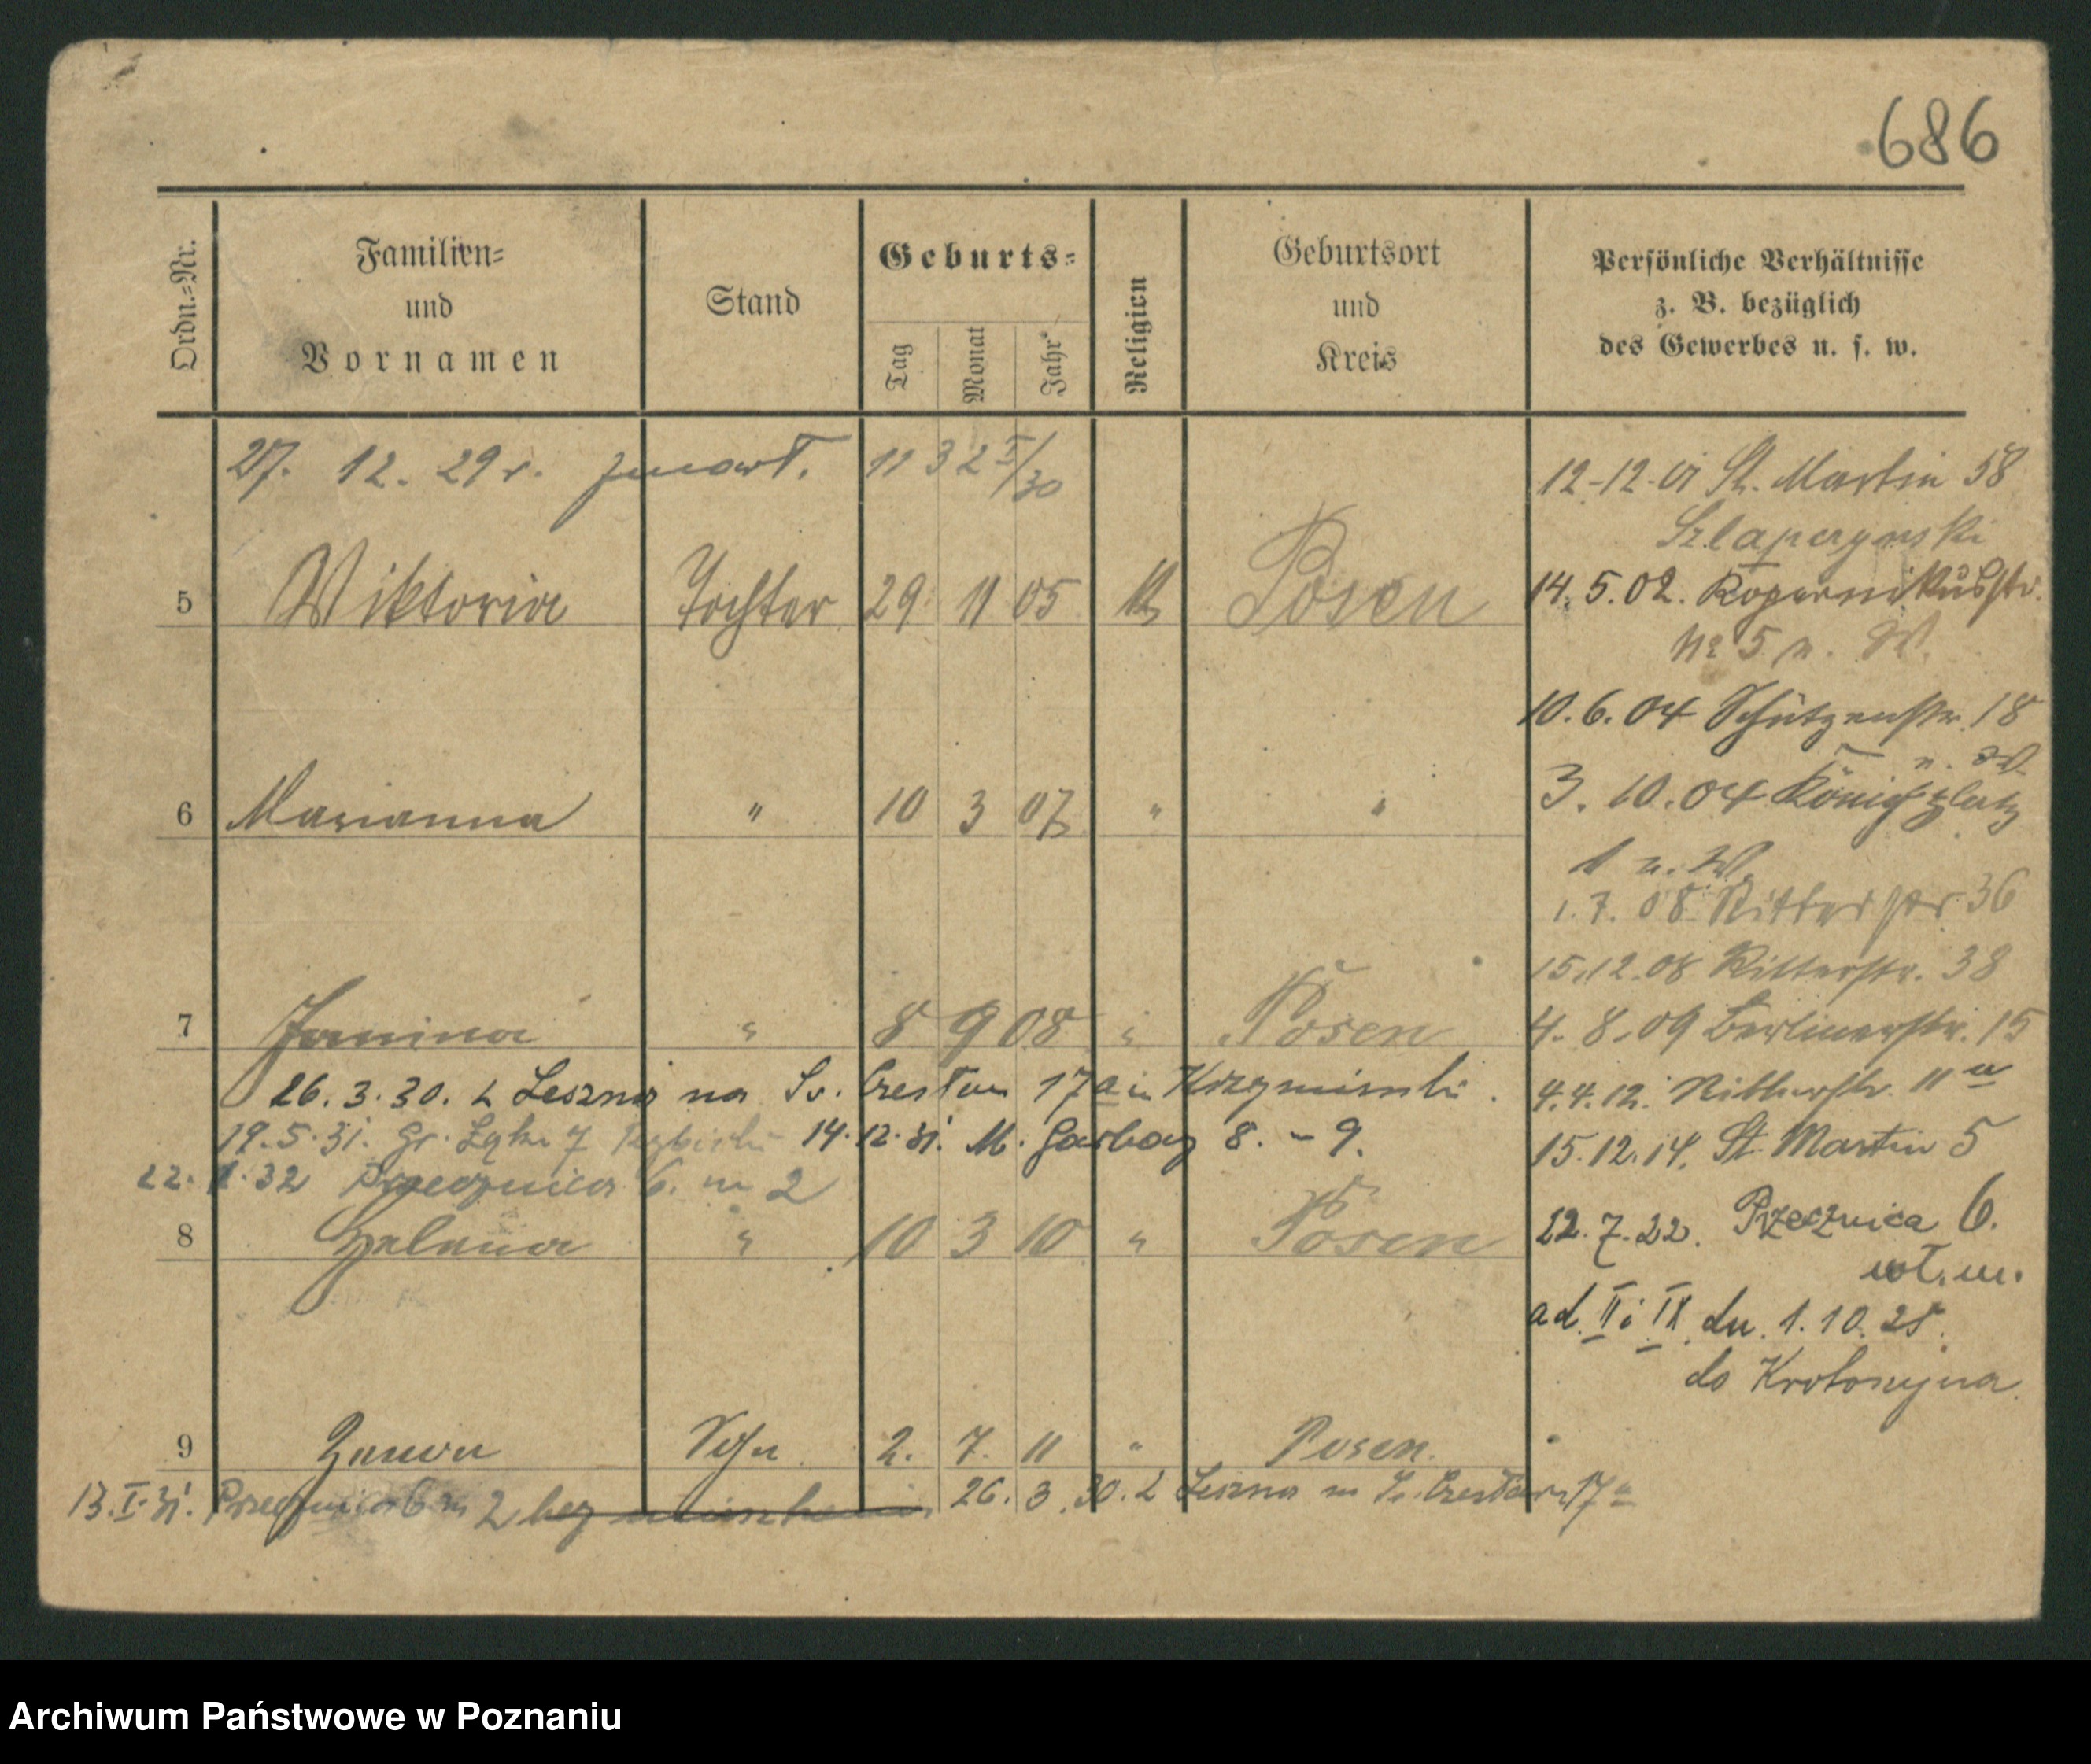 686
Ordn.=Nr.
Familien=
und
Vornamen
Stand
Geburts=
Tag
Monat
Jahr
Religion
Geburtsort
und
Kreis
Persönliche Verhältnisse
z. B. bezüglich
des Gewerbes u. s. w.
27. 12. 29 r. zmarł. 11 3 2 I/30
5 Viktoria Tochter 29 11 05 k Posen
6 Marianna " 10 3 07 " "
7 Janina " 8 9 08 " Posen
26. 3. 30. z Leszna na Sw. 17a
19.5.31. Gr. Łąka 7 14.12.31. M. Garbary 8. - 9.
22. 1. 32 Przecznica 6. m 2
8 Helena " 10 3 10 " Posen
9 Zenon Sohn 2. 7. 11 " Posen.
13.I.31. Przecznica 6 m 2 bez 26. 3. 30. z Leszna 17a
12-12-01 St. Martin 58
14. 5. 02. Kopernikusstr.
Nr 5 n. W.
10. 6. 04 Schützenstr. 18
n. W.
3. 10. 04 Königsplatz
1 n. W.
1. 7. 08 Ritterstr 36
15.12.08 Ritterstr. 38
4. 8. 09 Berlinerstr. 15
4.4.12. Ritterstr. 11a
15.12.14. St. Martin 5
22. 7. 22. Przecznica 6.
wł. m.
ad. II i IX dn. 1. 10. 25.
do Krotoszyna.
Archiwum Państwowe w Poznaniu